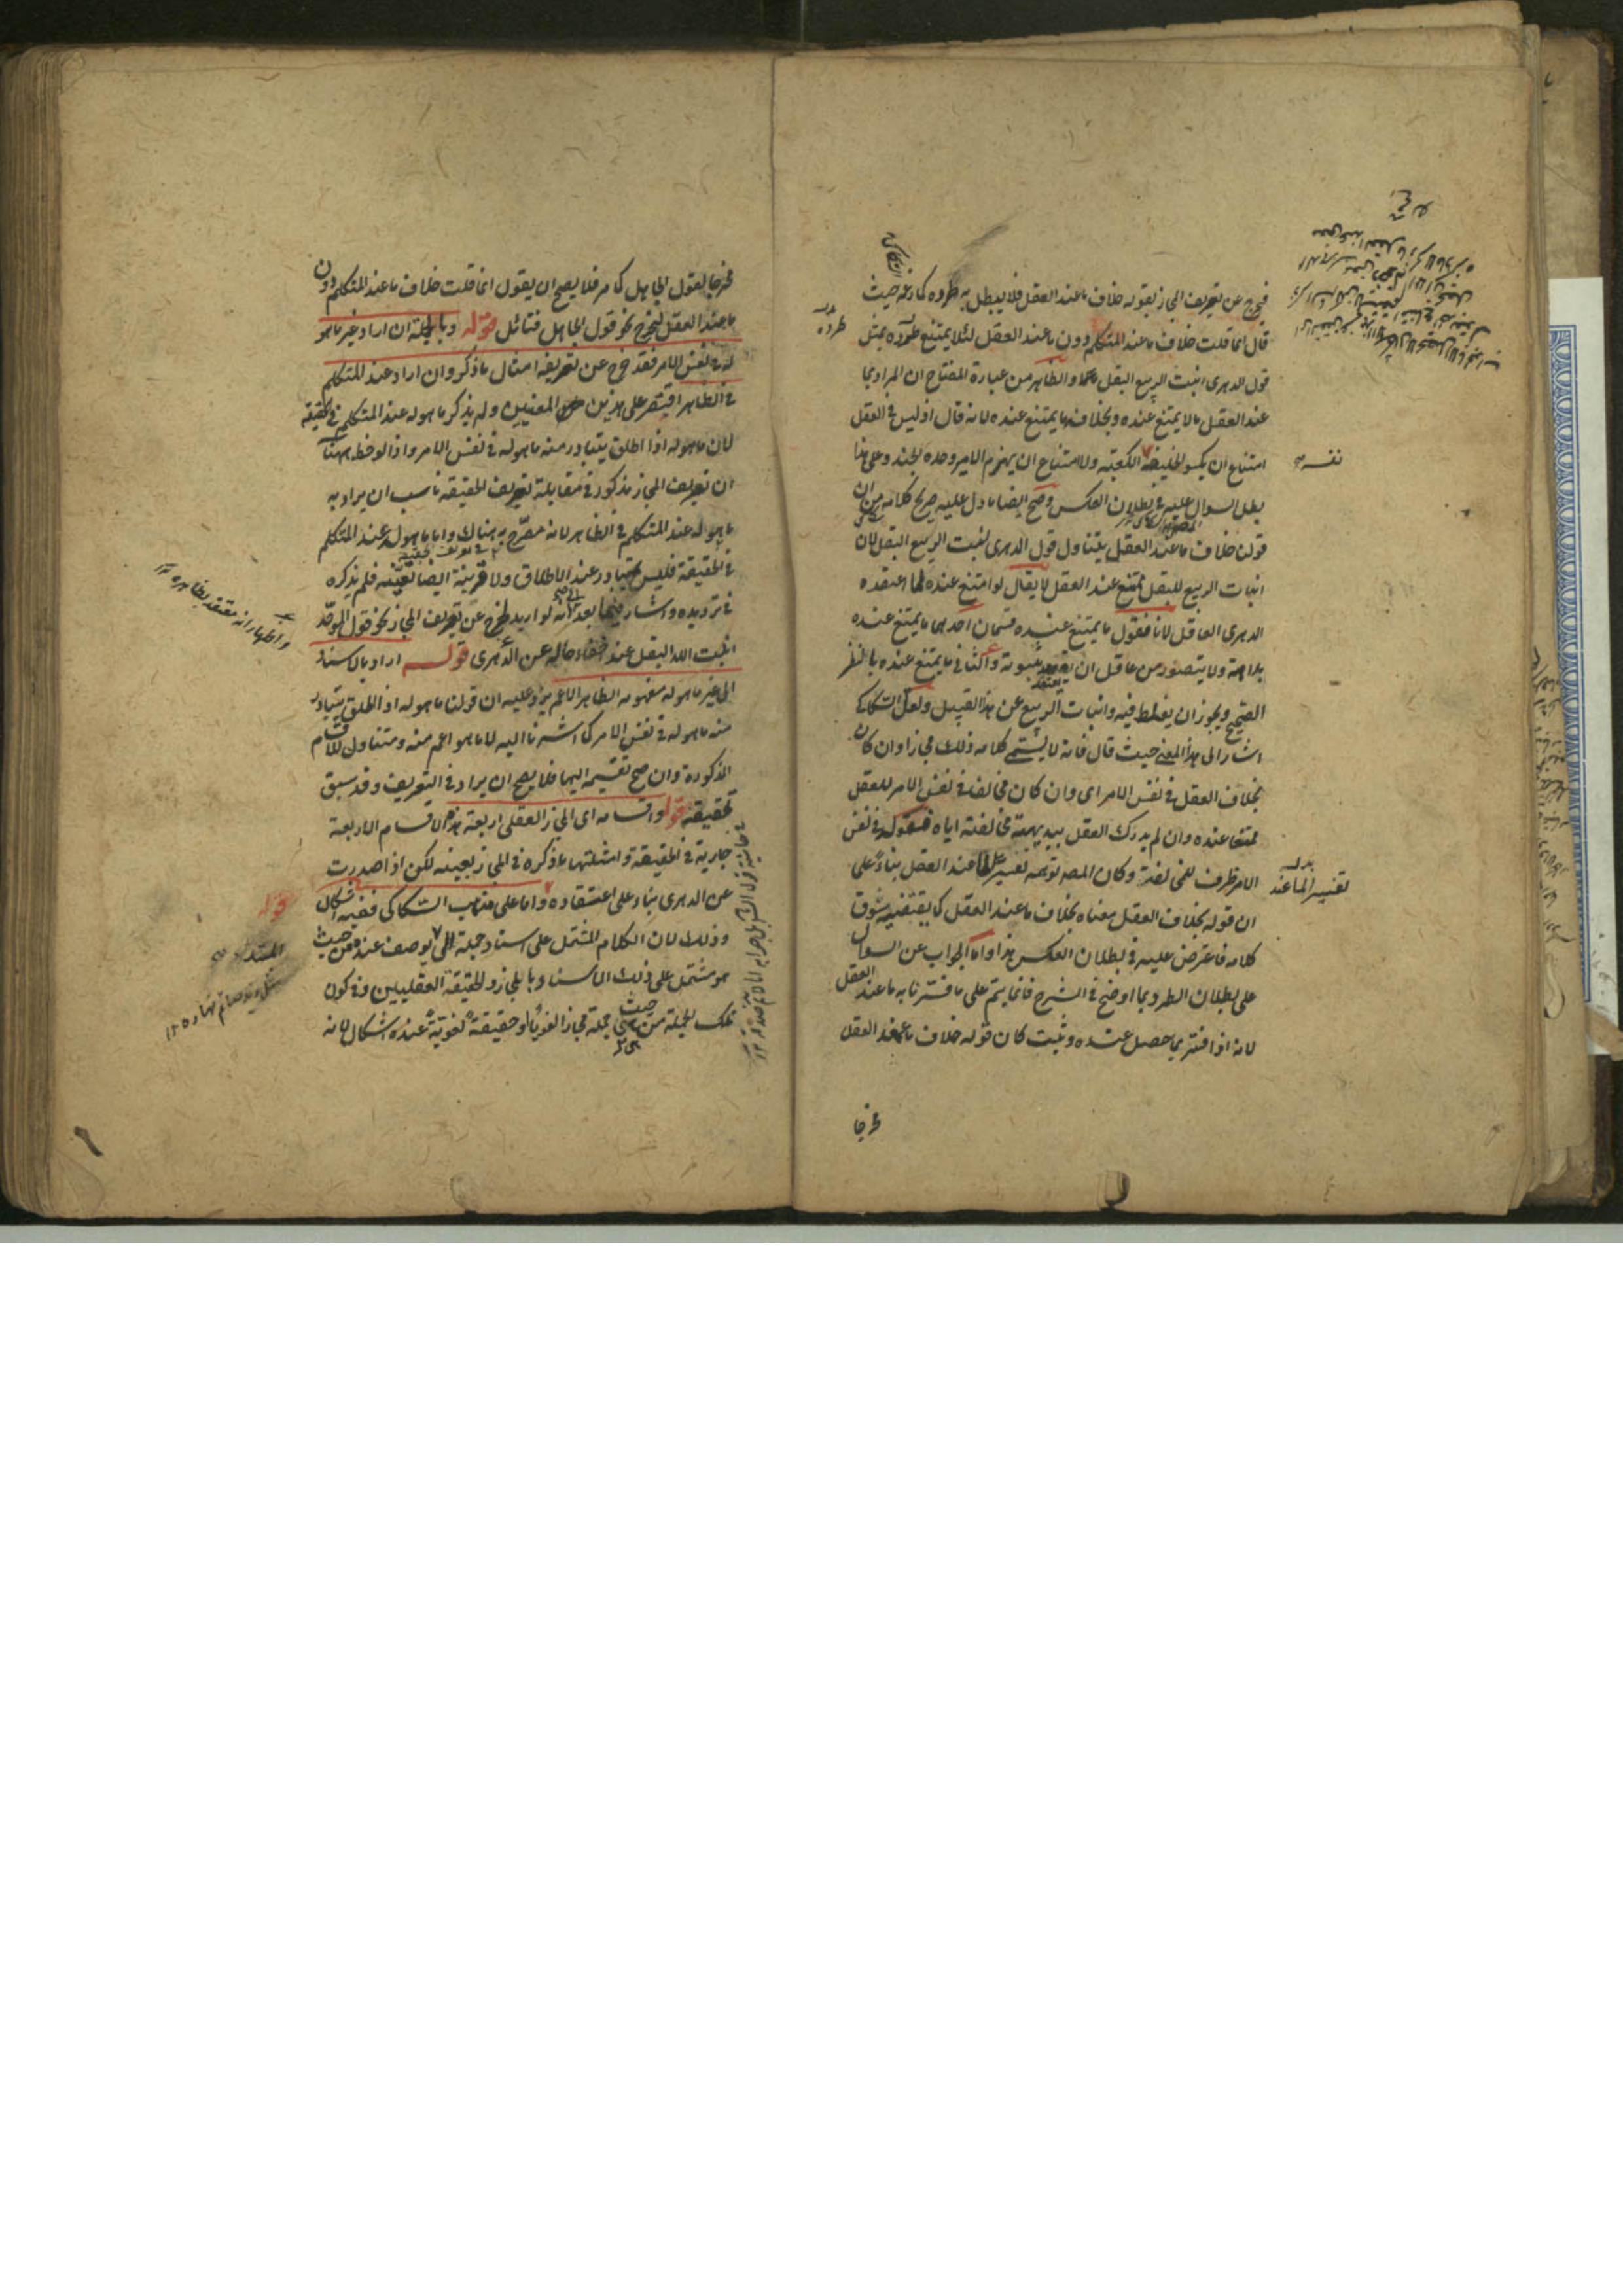 فيخرج عن تعريف المجاز بقوله خلاف ما عند العقل فلا يبطل به طرده كما زعمه حيث
قال انما قلت خلاف ما عند المتكلم دون ما عند العقل لئلا يمتنع طرده بمثل
قول الدهرى انبت الربيع البقل والظاهر من عبارة المفتاح ان المراد بما
عند العقل ما لا يمتنع عنده وبخلافه ما يمتنع عنده لانه قال اذ ليس فى العقل
امتناع ان يكسو الخليفة الكعبة ولا امتناع ان يهزم الامير وحده الجند وعلى هذا
بطل السوال عليه فى بطلان العكس وصح ايضا ما دل عليه صريح كلامه من ان
قولنا خلاف ما عند العقل يتناول قول الدهرى انبت الربيع البقل لان
انبات الربيع للبقل ممتنع عند العقل لا يقال لو امتنع عنده لما اعتقده
الدهرى العاقل لانا نقول ما يمتنع عنده قسمان احدهما ما يمتنع عنده
بداهة ولا يتصور من عاقل ان يعتقد ثبوته والثانى ما يمتنع عنده بالنظر
الصحيح ويجوز ان يغلط فيه وانبات الربيع من هذا القبيل ولعل السكاكى
اشار الى هذا المعنى حيث قال فانه لا يسمى كلامه ذلك مجازا وان كان
بخلاف العقل فى نفس الامر اى وان كان مخالفا فى نفس الامر للعقل
ممتنعا عنده وان لم يدرك العقل ببديهته مخالفته اياه فقوله فى نفس
الامر ظرف للمخالفة وكان المصه توهمه تفسيرا لما عند العقل بناء على
ان قوله بخلاف العقل معناه بخلاف ما عند العقل كما يقتضيه سوق
كلامه فاعترض عليه فى بطلان العكس هذا واما الجواب عن السوال
على بطلان الطرد بما اوضح فى الشرح فانما يتم على ما فسرنا به ما عند العقل
لانه اذا فسر بما حصل عنده وثبت كان قوله خلاف ما عند العقل
مخرجا
طرده
نفسه صح
تفسير الما عند
مخرجا لقول الجاهل كما مر فلا يصح ان يقول انما قلت خلاف ما عند المتكلم دون
ما عند العقل ليخرج نحو قول الجاهل فتأمل قوله وبالجملة ان اراد غير ما هو
له فى نفس الامر فقد خرج عن تعريفه امثال ما ذكر وان اراد عند المتكلم
فى الظاهر اقتصر على هذين المعنيين ولم يذكر ما هو له عند المتكلم فى الحقيقة
لان ما هو له اذا اطلق يتبادر منه ما هو له فى نفس الامر واذا لوحظ ههنا
ان تعريف المجاز مذكور فى مقابلة تعريف الحقيقة ناسب ان يراد به
ما هو له عند المتكلم فى الظاهر لانه مصرح به هناك واما ما هو له عند المتكلم
فى الحقيقة فليس يتبادر عند الاطلاق ولا قرينة ايضا تعينه فلم يذكره
فى ترديده واشار فيما بعد الى انه لو اريد لخرج عن تعريف المجاز نحو قول الموحد
انبت الله البقل عند اخفاء حاله عن الدهرى قوله اراد بالاسناد
الى غير ما هو له مفهومه الظاهر الاعم يرد عليه ان قولنا ما هو له اذا اطلق يتبادر
منه ما هو له فى نفس الامر كما اشرنا اليه لا ما هو اعم منه ومتناول للاقسام
المذكورة وان صح تقسيمه اليها فلا يصح ان يراد فى التعريف وقد سبق
تحقيقه قوله واقسامه اى المجاز العقلى اربعة هذه الاقسام الاربعة
جارية فى الحقيقة وامثلتها ما ذكره فى المجاز بعينه لكن اذا صدرت
عن الدهرى بناء على اعتقاده واما على مذهب السكاكى ففيه اشكال
وذلك لان الكلام المشتمل على اسناد جملة الى يوصف عنده من حيث
هو مشتمل على ذلك الاسناد بالمجاز والحقيقة العقليين وفى كون
تلك الجملة من حيث هى جملة مجازا لغويا او حقيقة لغوية عنده اشكال لانه
واظهار انه معتقد بظاهره ١٢
قوله